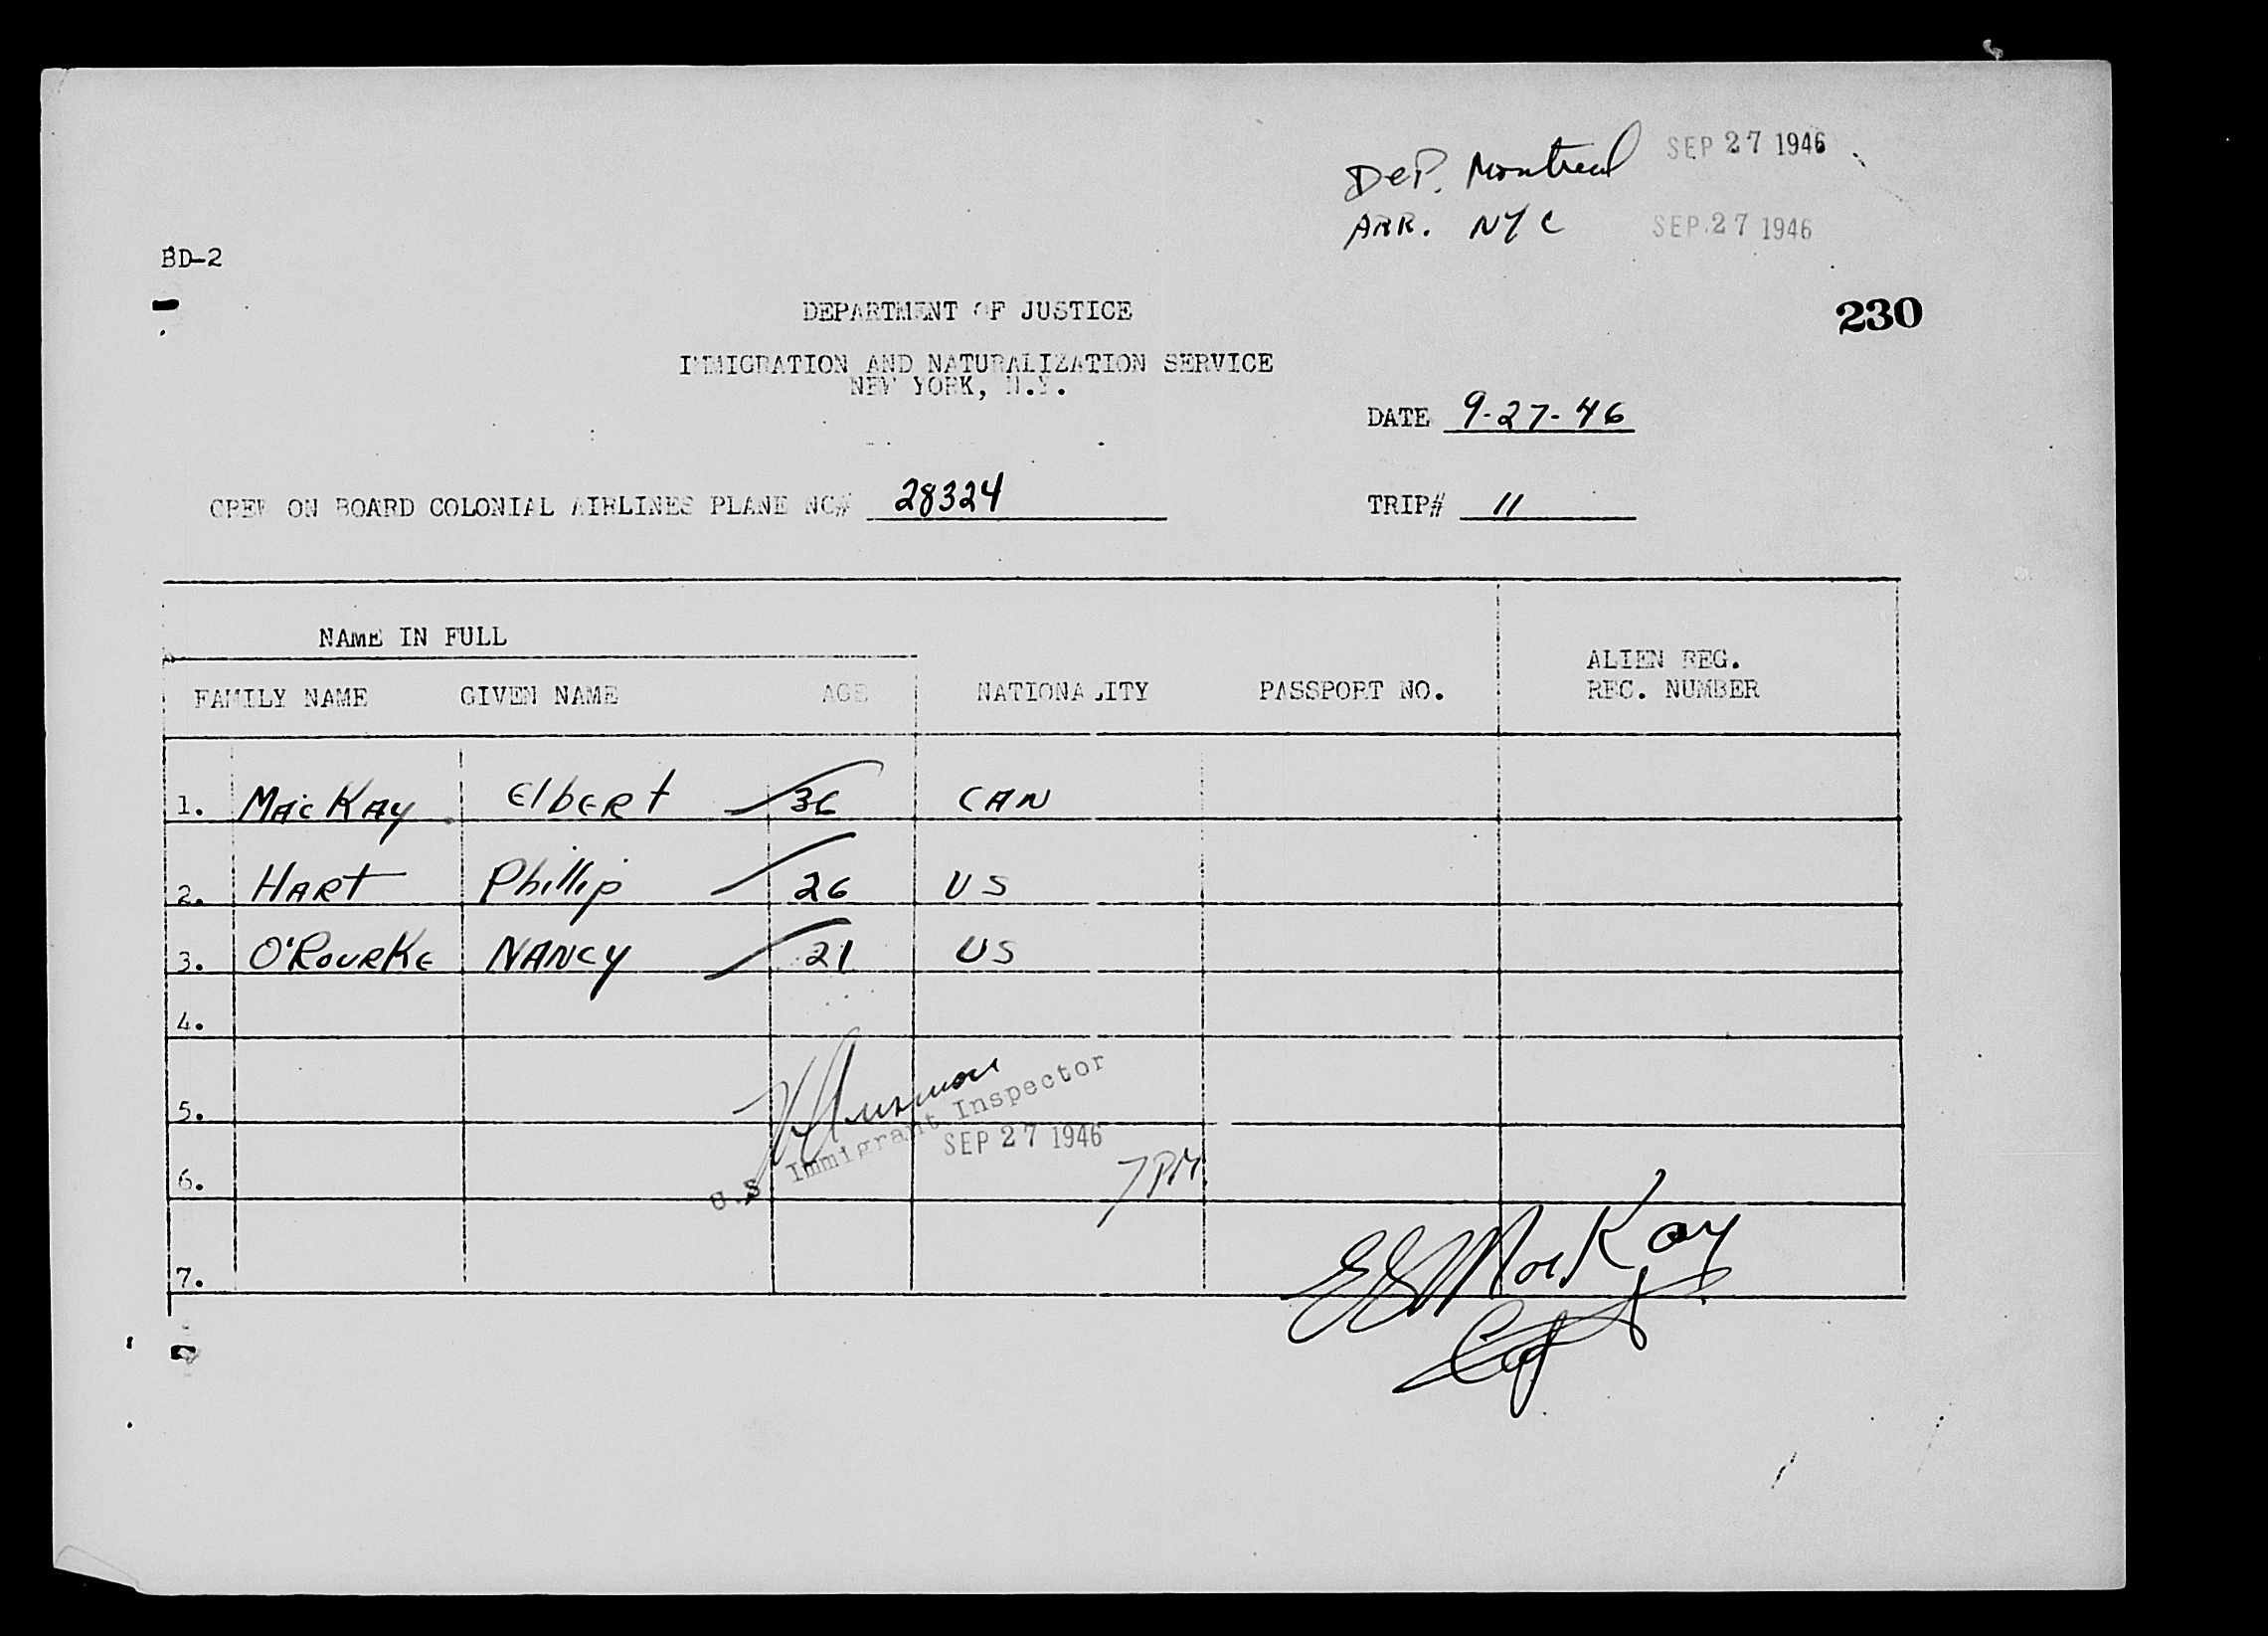 DEP. Montreal SEP 27 1946
ARR. NYC SEP 27 1946
BD-2
230
DEPARTMENT OF JUSTICE
IMMIGRATION AND NATURALIZATION SERVICE
NEW YORK, N.Y.
DATE 9-27-46
CREW ON BOARD COLONIAL AIRLINES PLANE NC# 28324 TRIP# 11
NAME IN FULL
FAMILY NAME GIVEN NAME AGE NATIONALITY PASSPORT NO. ALIEN REG. REC. NUMBER
1. MacKay Elbert 36 CAN
2. Hart Phillip 26 US
3. O'Rourke Nancy 21 US
4.
5.
U.S. Immigrant Inspector
SEP 27 1946
7 PM
6.
MacKay
7.
Capt